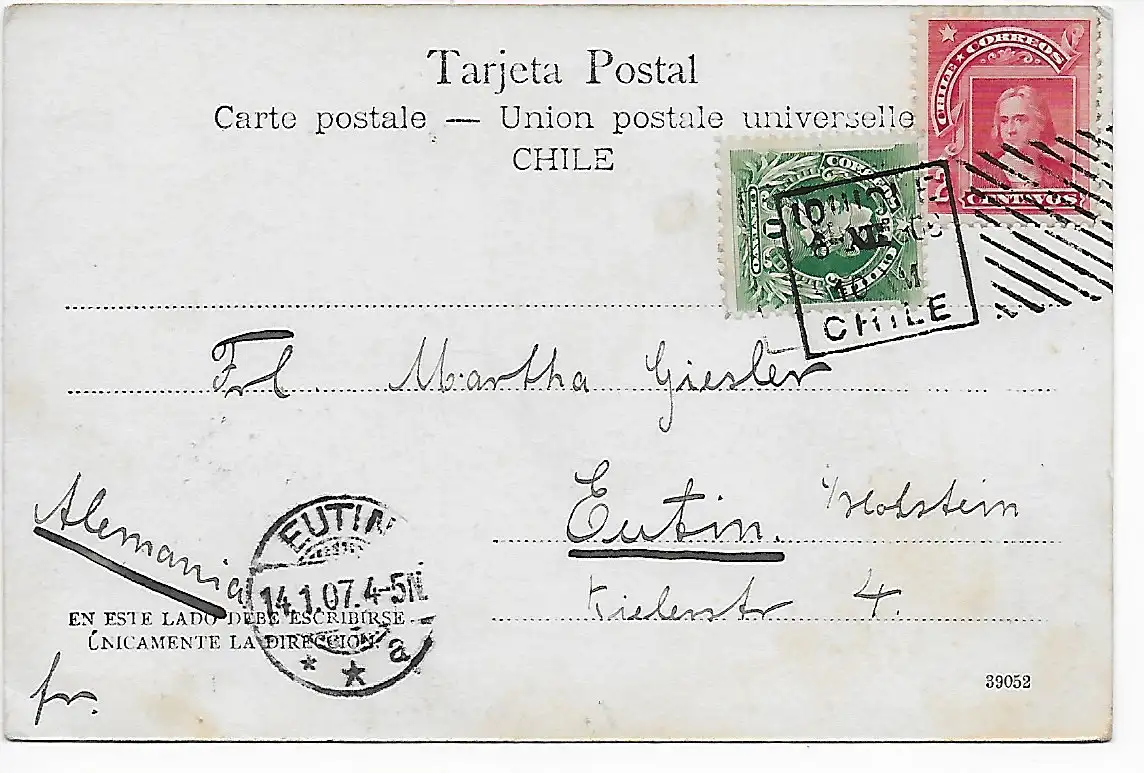 Tarjeta Postal
Carte postale — Union postale universelle
CHILE
CHILE ★ CORREOS
CENTAVOS
IQUIQUE
CHILE
Frl. Martha Giesler
Eutin. i/Holstein
Kielerstr 4.
Alemania
EUTIN
14.1.07.4-5N
* * a
EN ESTE LADO DEBE ESCRIBIRSE
ÚNICAMENTE LA DIRECCIÓN.
fr.
39052